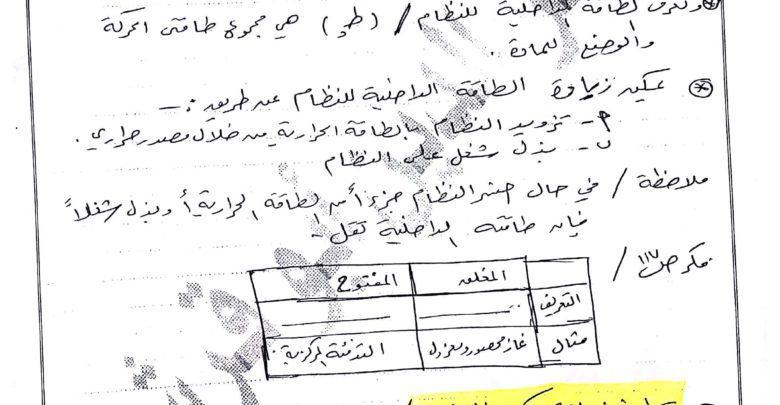 وتعرف الطاقة الداخلية للنظام / (ط د) هي مجموع طاقتي الحركة
والوضع للمادة .
* يمكن زيادة الطاقة الداخلية للنظام عن طريق :-
أ- تزويد النظام بالطاقة الحرارية من خلال مصدر حراري .
ب- بذل شغل على النظام
ملاحظة / في حال خسر النظام جزء من الطاقة الحرارية أو بذل شغلاً
فإن طاقته الداخلية تقل .
فكر ص ١١٧ /
المغلق المفتوح
التعريف
مثال غاز محصور ومعزول التدفئة المركزية .